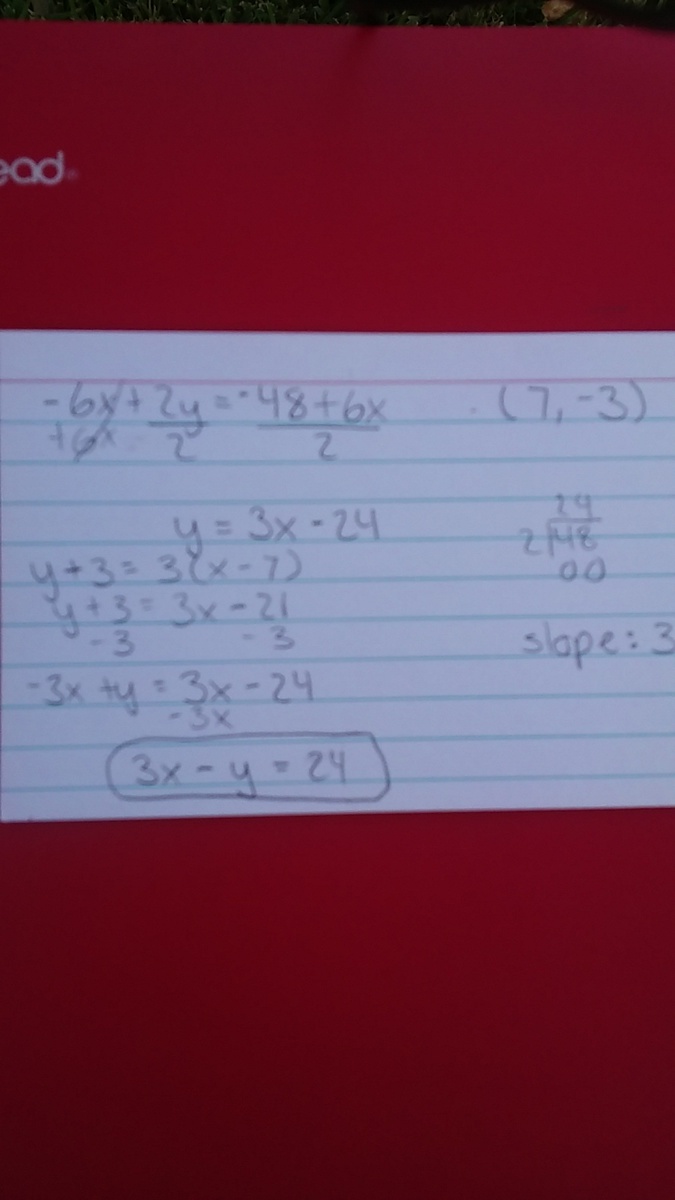 ead
-6x + 2y = -48 + 6x (7, -3)
+6x 2 2
24
y = 3x - 24 2 48
y + 3 = 3(x - 7) 00
y + 3 = 3x - 21
-3 -3 slope: 3
-3x + y = 3x - 24
-3x
3x - y = 24